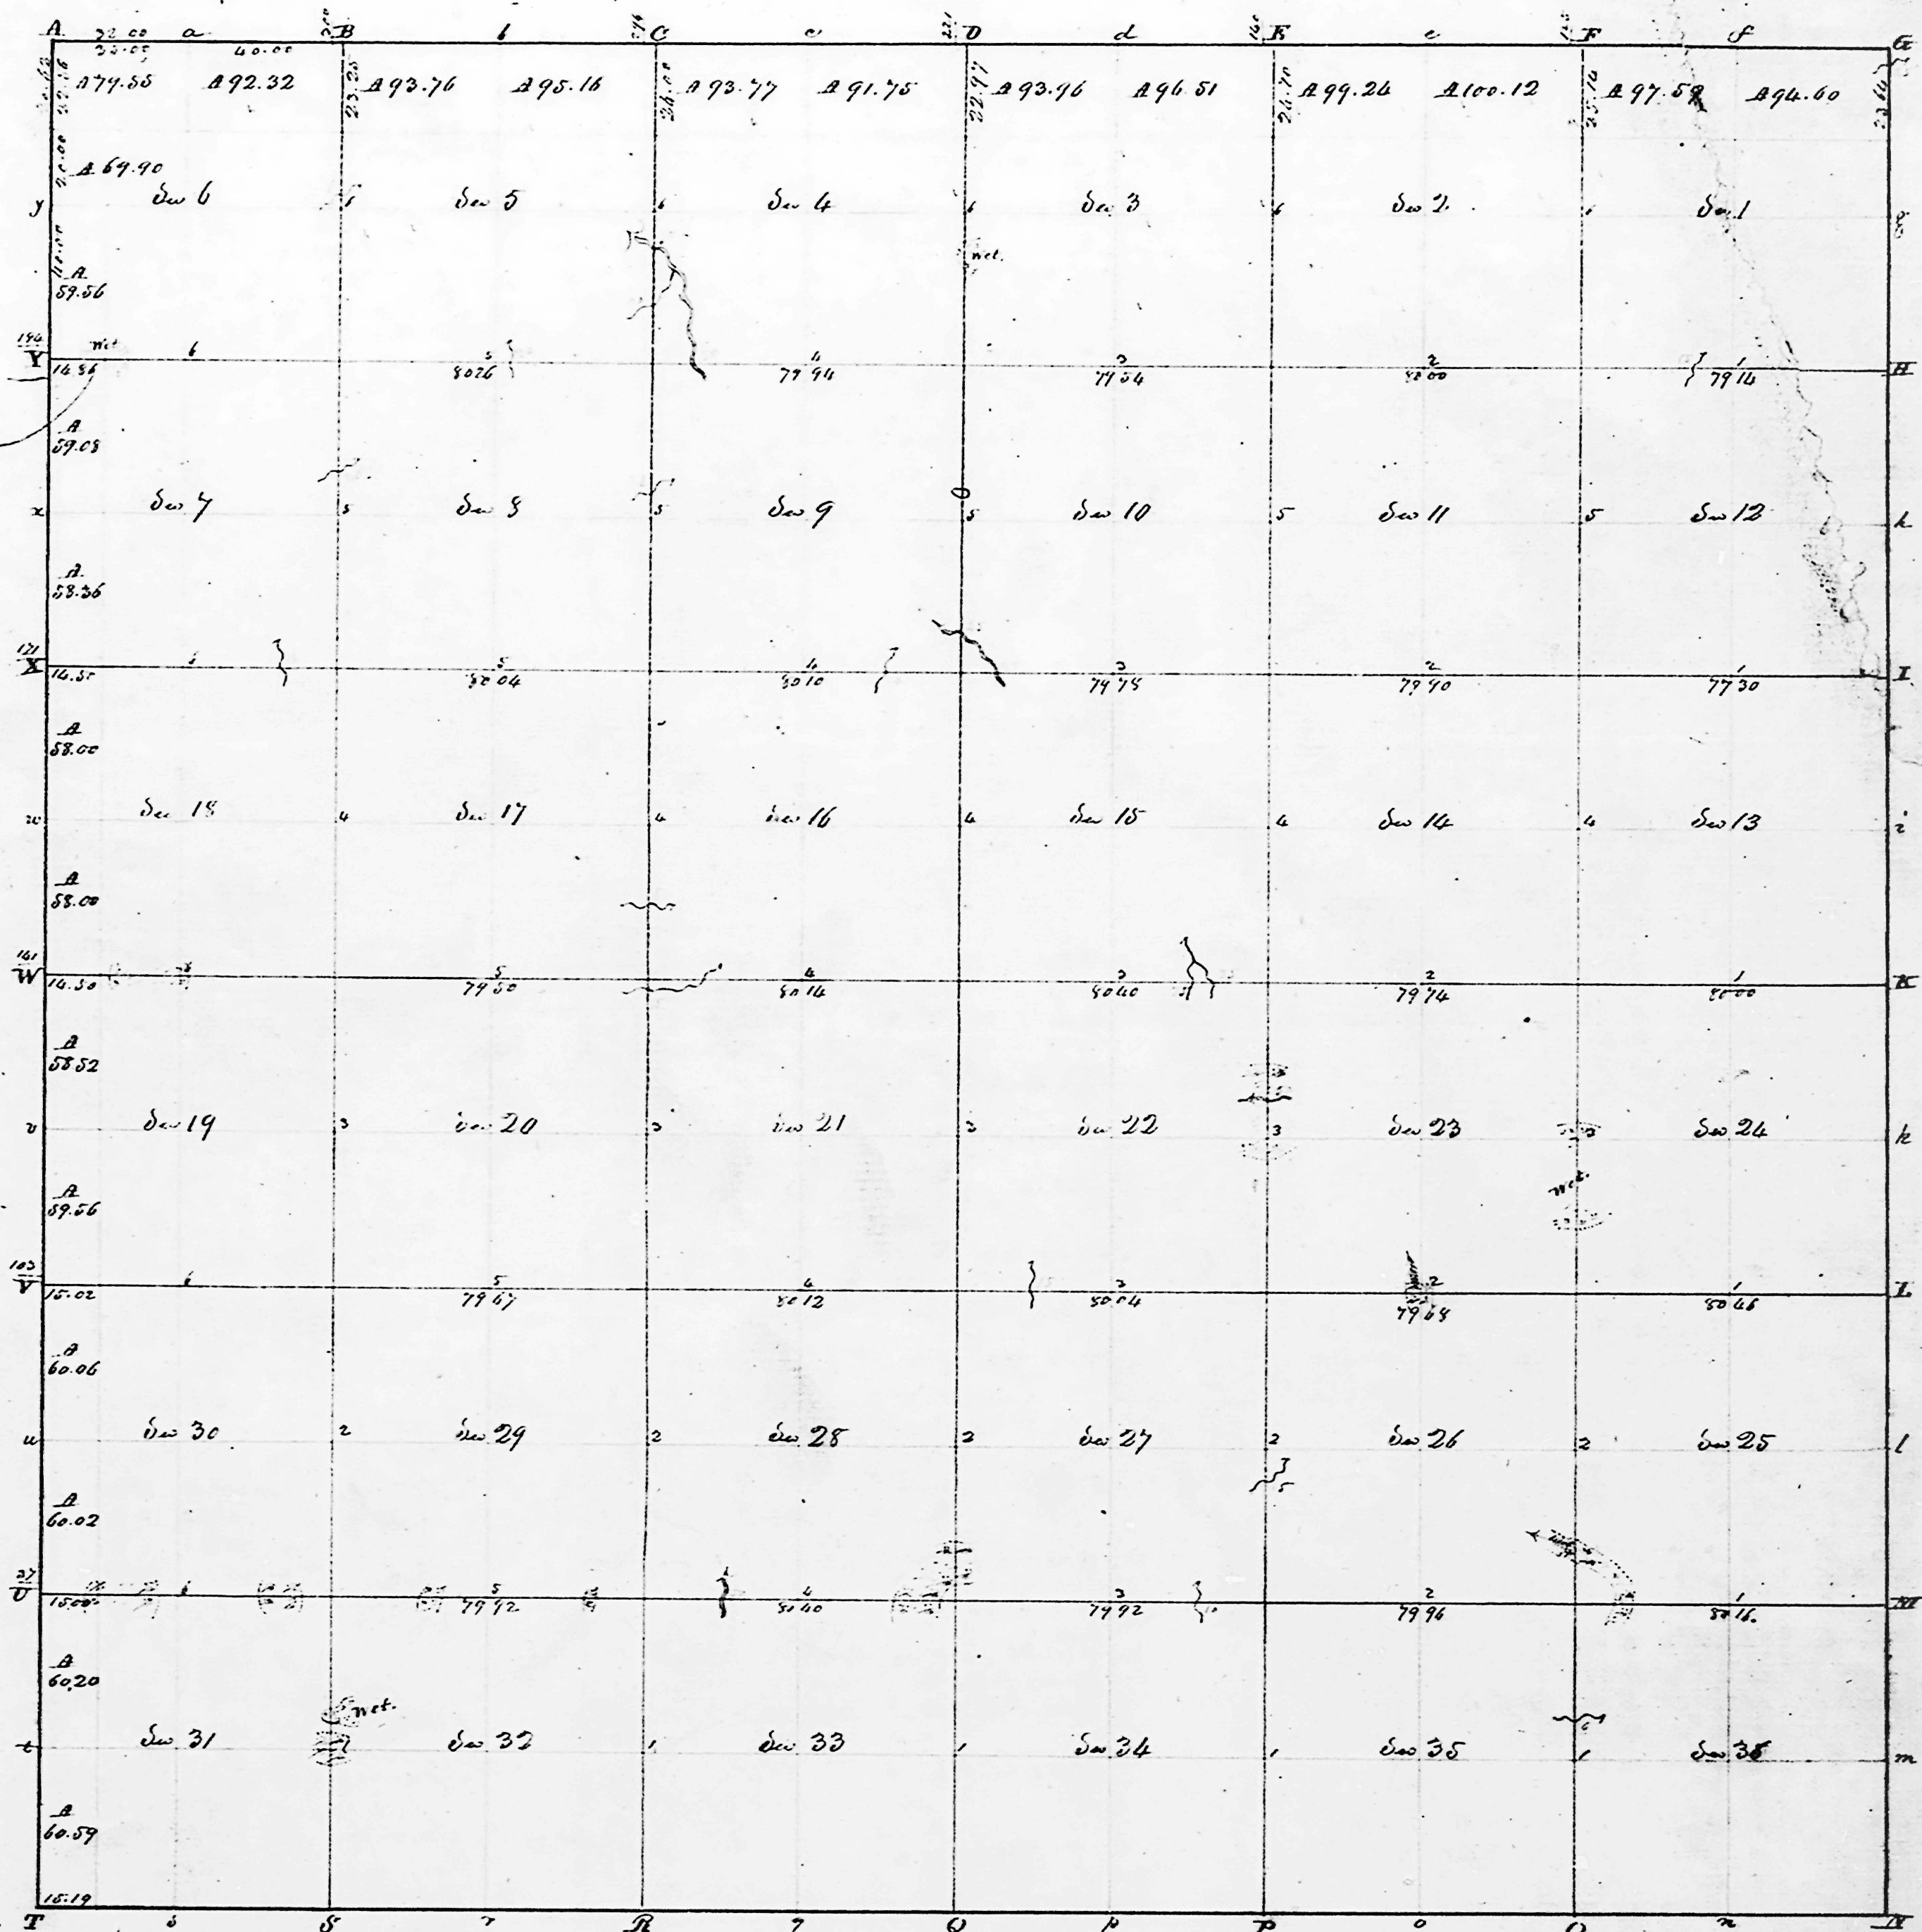 A 32.00 a B b C c D d E e F f G
40.00
A 79.55 A 92.32 A 93.76 A 95.16 A 93.77 A 91.75 A 93.96 A 96.51 A 99.24 A 100.12 A 97.58 A 94.60
23.25 24.00 22.97 24.70 25.14
20.00
A 69.90
y Sec 6 Sec 5 6 Sec 4 6 Sec 3 6 Sec 2 6 Sec 1 g
Wet.
A
59.56
194 Wet 6 5 4 3 2 1
Y 14.86 80 26 79 94 79 54 80 00 79 14 H
A
59.08
x Sec 7 5 Sec 8 5 Sec 9 5 Sec 10 5 Sec 11 5 Sec 12 h
A
58.36
121 6 5 4 3 2 1
X 14.50 80 04 80 10 79 78 79 90 77 30 I
A
58.00
w Sec 18 4 Sec 17 4 Sec 16 4 Sec 15 4 Sec 14 4 Sec 13 i
A
58.00
141 6 5 4 3 2 1
W 14.50 79 50 80 14 80 40 79 74 80 00 K
A
58.52
v Sec 19 3 Sec 20 3 Sec 21 3 Sec 22 3 Sec 23 3 Sec 24 k
Wet.
A
59.56
103 6 5 4 3 2 1
V 15.02 79 67 80 12 80 04 79 68 80 46 L
A
60.06
u Sec 30 2 Sec 29 2 Sec 28 2 Sec 27 2 Sec 26 2 Sec 25 l
A
60.02
37 6 5 4 3 2 1
U 15.00 79 92 80 40 79 92 79 96 80 16. M
A
60.20
Wet.
t Sec 31 Sec 32 1 Sec 33 1 Sec 34 1 Sec 35 1 Sec 36 m
A
60.59
15.19
T s S r R q Q p P o O n N